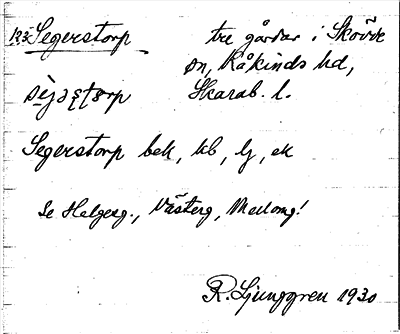 133 Segerstorp tre gårdar i Skövde
sn, Kåkinds hd,
Skarab. l.
Segerstorp bek, kb, lj, ek
Se Helgesg., Västerg, Mellomg!
R. Ljunggren 1930